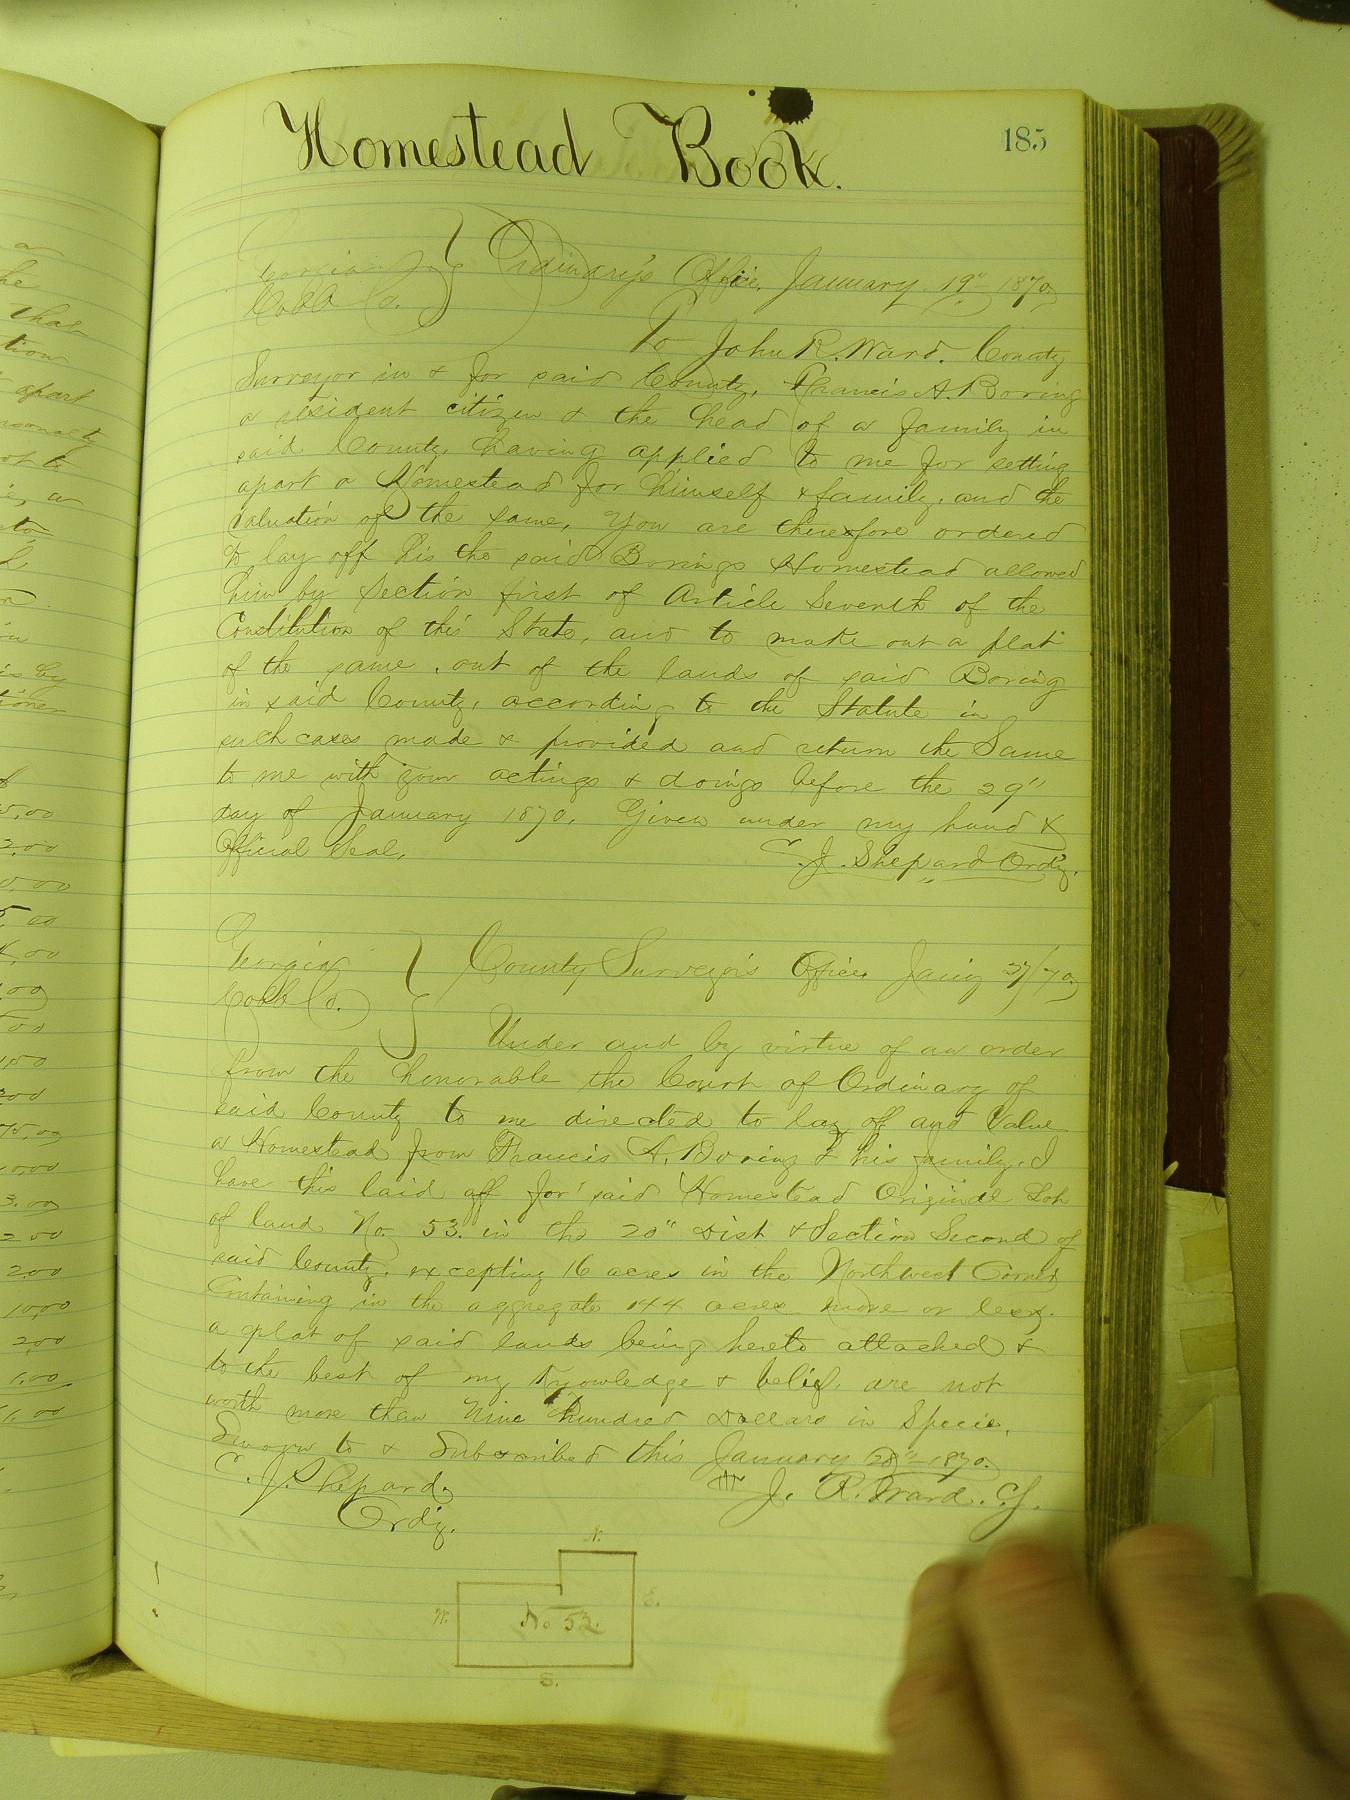 Homestead Book.
185
Georgia } Ordinary's Office, January 19" 1870,
Cobb Co.
To John R. Ward. County
Surveyor in & for said County, Francis A. Boring
a resident citizen & the head of a family in
said County, having applied to me for setting
apart a Homestead for himself & family, and the
valuation of the same, You are therefore ordered
to lay off his the said Borings Homestead allowed
him by Section first of Article Seventh of the
Constitution of this State, and to make out a plat
of the same, out of the lands of said Boring
in said County, according to the Statute in
such cases made & provided and return the Same
to me with your actings & doings before the 29"
day of January 1870, Given under my hand &
Official Seal,
C. J. Shepard Ordy.
Georgia } County Surveyor's Office Jany 27/70,
Cobb Co.
Under and by virtue of an order
from the honorable the Court of Ordinary of
said County to me directed to lay off and Value
a Homestead from Francis A. Boring & his family, I
have this laid off for said Homestead Original Lot
of land No. 53. in the 20" Dist & Section Second of
said County, excepting 16 acres in the Northwest Corner
Containing in the aggregate 144 acres more or less,
a plat of said lands being hereto attached &
to the best of my Knowledge & belief, are not
worth more than Nine hundred Dollars in Specie,
Sworn to & Subscribed this January 28" 1870,
C. J. Shepard, J. R. Ward. C.S.
Ordy.
N.
W. No 53. E.
S.
a
he
that
tion
apart
5,00
2,00
5 00
4,00
1 50
75,00
3,00
2 00
2 00
10,00
2,00
1,00